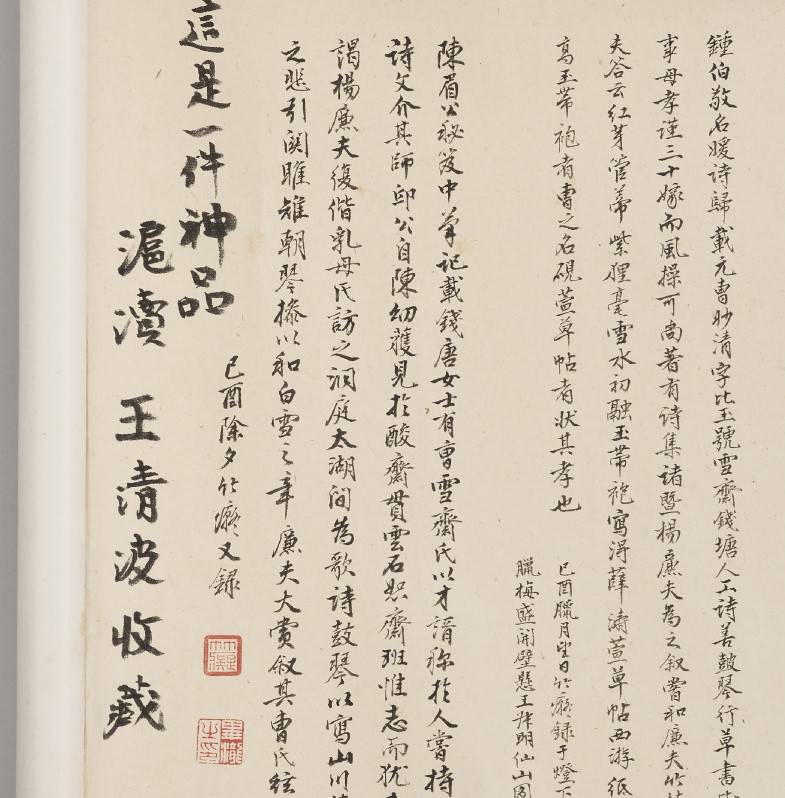 鍾伯敬名媛詩歸載元曹妙清字比玉號雪齋錢塘人工詩善鼓琴行草書
事母孝謹三十嫁而風操可尚著有詩集諸暨楊廉夫為之叙嘗和廉夫竹
夫答云紅芽管蒂紫狸毫雪水初融玉帶袍寫得薛濤萱草帖西游紙
高玉帶袍者曹之名硯萱草帖者狀其孝也
己酉臘月望日竹癡録于燈下
臘梅盛開壁懸王叔明仙山圖
陳眉公秘笈中筆記載錢唐女士有曹雪齋氏以才諝稱於人嘗持
詩文介其師邱公自陳幼獲見於酸齋貫雲石恕齋班惟志而猶
謁楊廉夫復偕乳母氏訪之洞庭太湖間為歌詩鼓琴以寫山川
之悲引関雎雉朝琴操以和白雪之章廉夫大賞叙其曹氏絃
己酉除夕竹癡又録
這是一件神品
滬瀆 王清波收藏